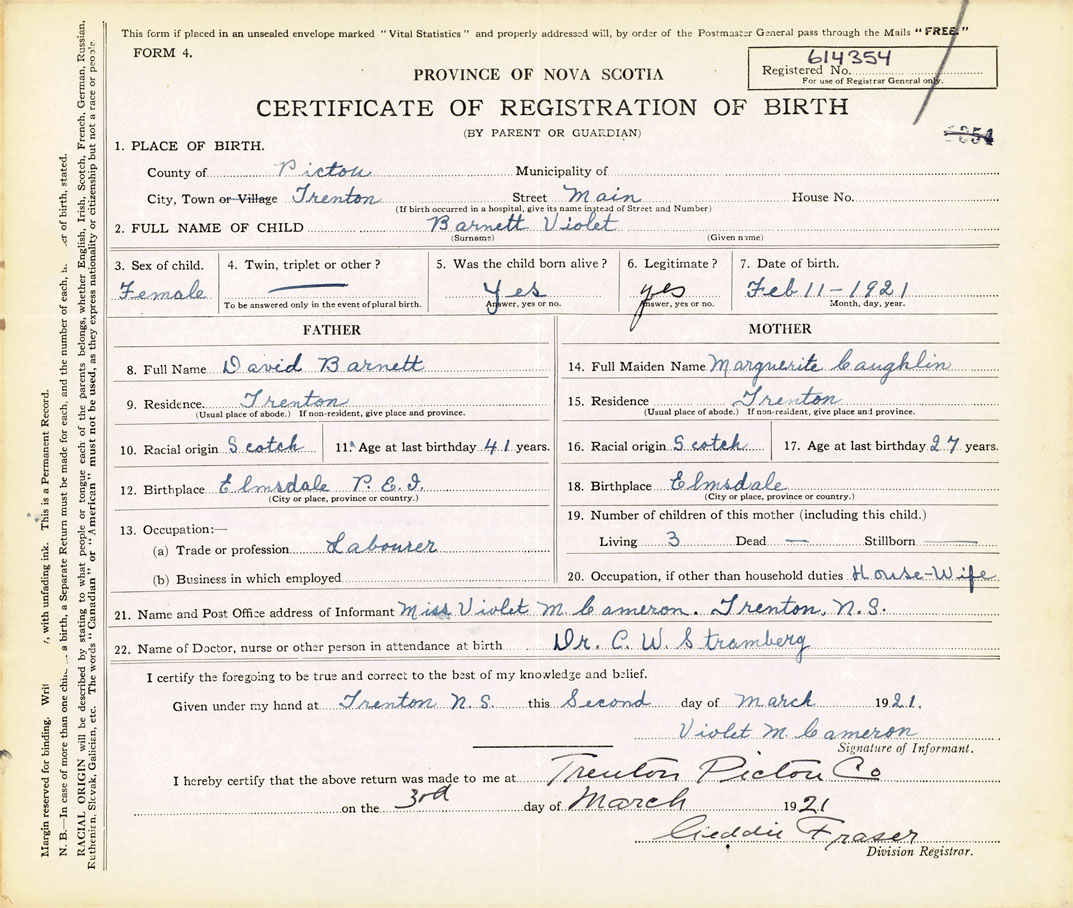 This form if placed in an unsealed envelope marked "Vital Statistics" and properly addressed will, by order of the Postmaster General pass through the Mails "FREE."
FORM 4.
614354
Registered No.
For use of Registrar General only.
PROVINCE OF NOVA SCOTIA
CERTIFICATE OF REGISTRATION OF BIRTH
(BY PARENT OR GUARDIAN)
1. PLACE OF BIRTH.
County of Pictou Municipality of
City, Town or Village Trenton Street Main House No.
(If birth occurred in a hospital, give its name instead of Street and Number)
2. FULL NAME OF CHILD Barnett Violet
(Surname) (Given name)
3. Sex of child. 4. Twin, triplet or other? 5. Was the child born alive? 6. Legitimate? 7. Date of birth.
Female Yes yes Feb 11-1921
To be answered only in the event of plural birth. Answer, yes or no. Answer, yes or no. Month, day, year.
FATHER
8. Full Name David Barnett
9. Residence. Trenton
(Usual place of abode.) If non-resident, give place and province.
10. Racial origin Scotch 11. Age at last birthday 41 years.
12. Birthplace Elmsdale P.E.I.
(City or place, province or country.)
13. Occupation:—
(a) Trade or profession Labourer
(b) Business in which employed
MOTHER
14. Full Maiden Name Marguerite Caughlin
15. Residence Trenton
(Usual place of abode.) If non-resident, give place and province.
16. Racial origin Scotch 17. Age at last birthday 27 years.
18. Birthplace Elmsdale
(City or place, province or country.)
19. Number of children of this mother (including this child.)
Living 3 Dead — Stillborn —
20. Occupation, if other than household duties House-Wife
21. Name and Post Office address of Informant Miss Violet M. Cameron. Trenton, N.S.
22. Name of Doctor, nurse or other person in attendance at birth Dr. C. W. Stramberg
I certify the foregoing to be true and correct to the best of my knowledge and belief.
Given under my hand at Trenton N.S. this Second day of March 1921.
Violet M Cameron
Signature of Informant.
I hereby certify that the above return was made to me at Trenton Pictou Co
on the 3rd day of March 1921
Geddie Fraser
Division Registrar.
Margin reserved for binding. with unfading ink. This is a Permanent Record.
N. B.—In case of more than one a birth, a Separate Return must be made for each, and the number of each, of birth, stated.
RACIAL ORIGIN will be described by stating to what people or tongue each of the parents belongs, whether English, Irish, Scotch, French, German, Russian,
Ruthenian, Slovak, Galician, etc. The words "Canadian" or "American" must not be used, as they express nationality or citizenship but not a race or people.